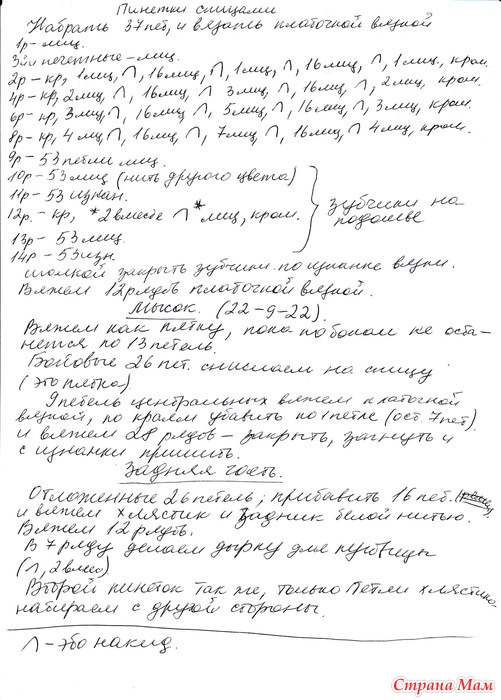 Пинетки спицами
Набрать 37 пет, и вязать платочной вязкой
1р – лиц.
3ий и нечетные – лиц.
2р – кр, 1лиц, ∩, 16лиц, ∩, 1лиц, ∩, 16лиц, ∩, 1лиц., кром.
4р – кр, 2лиц, ∩, 16лиц, ∩ 3лиц, ∩, 16лиц, ∩, 2лиц, кром.
6р – кр, 3лиц, ∩, 16лиц, ∩, 5лиц, ∩, 16лиц, ∩, 3лиц, кром.
8р – кр, 4лиц, ∩, 16лиц, ∩, 7лиц, ∩, 16лиц, ∩ 4лиц, кром.
9р – 53 петли лиц.
10р – 53лиц (нить другого цвета)
11р – 53 изнан.
12р. – кр, *2вместе ∩ * лиц, кром.
13р – 53лиц.
14р – 53изн.
зубчики на
подошве
иголкой закрыть зубчики по изнанке вязки.
Вяжем 12рядов платочной вязкой.
Мысок. (22-9-22).
Вяжем как пятку, пока по бокам не оста-
нется по 13петель.
Боковые 26 пет. снимаем на спицу
(это пятка)
9петель центральных вяжем платочной
вязкой, по краям убавить по 1 петле (ост. 7пет)
и вяжем 28 рядов – закрыть, загнуть и
с изнанки пришить.
Задняя часть.
Отложенные 26петель, прибавить 16 пет.
и вяжем хлястик и задник белой нитью.
Вяжем 12рядов.
В 7ряду делаем дырку для пуговицы
(∩, 2вмес)
Второй пинеток так же, только петли хлястика
набираем с другой стороны.
∩ – это накид.
Страна Мам